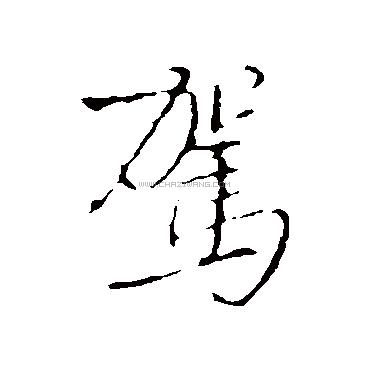 駕
WWW.CHAZIWANG.COM